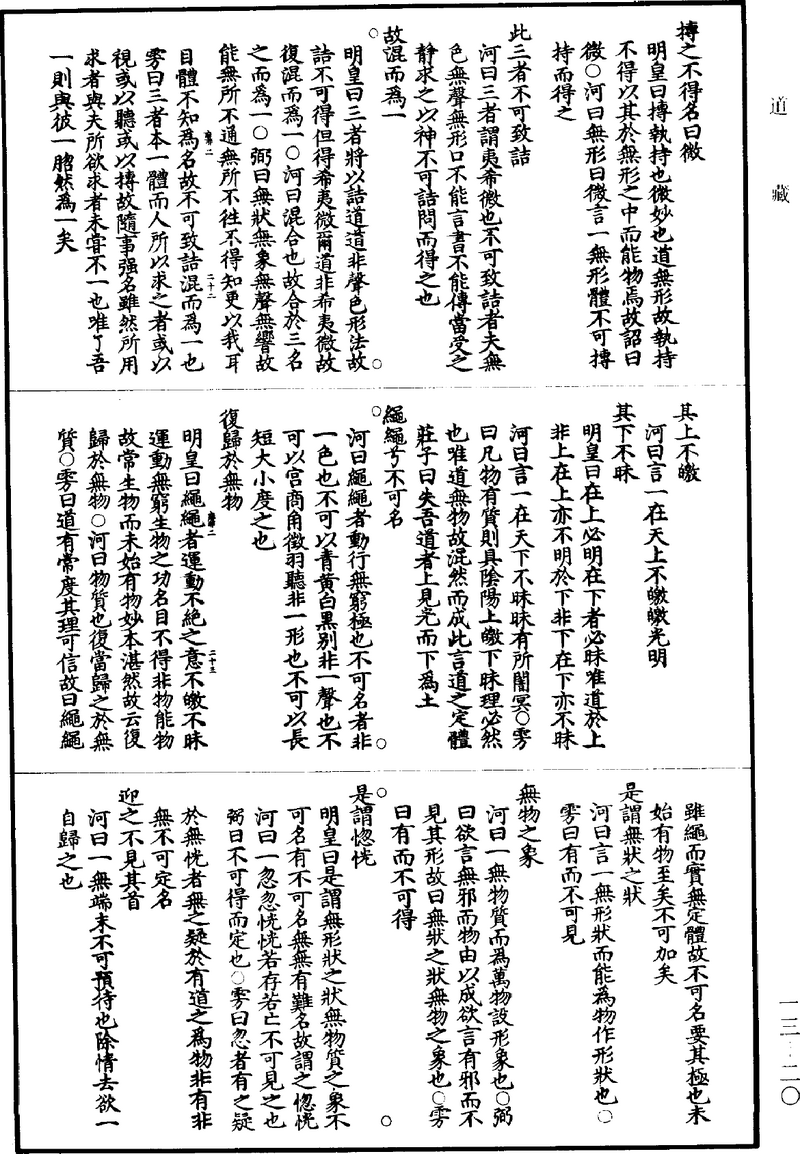 道藏
搏之不得名曰微
明皇曰搏執持也微妙也道無形故執持
不得以其於無形之中而能物焉故詔曰
微○河曰無形曰微言一無形體不可摶
持而得之
此三者不可致詰
河曰三者謂夷希微也不可致詰者夫無
色無聲無形口不能言書不能傳當受之
靜求之以神不可詰問而得之也
故混而為一
明皇曰三者將以詰道道非聲色形法故
詰不可得但得希夷微爾道非希夷微故
復混而為一○河曰混合也故合於三名
之而為一○弼曰無狀無象無聲無響故
能無所不通無所不往不得知更以我耳
目體不知為名故不可致詰混而為一也
雱曰三者本一體而人所以求之者或以
視或以聽或以摶故隨事强名雖然所用
求者與夫所欲求者未嘗不一也唯了吾
一則與彼一脗然為一矣
二十二
其上不皦
河曰言一在天上不皦皦光明
其下不昧
明皇曰在上必明在下者必昧唯道於上
非上在上亦不明於下非下在下亦不昧
河曰言一在天下不昧昧有所闇冥○雱
曰凡物有質則具陰陽上皦下昧理必然
也唯道無物故混然而成此言道之定體
莊子曰失吾道者上見光而下為土
繩繩兮不可名
河曰繩繩者動行無窮極也不可名者非
一色也不可以青黄白黑别非一聲也不
可以宫商角徵羽聽非一形也不可以長
短大小度之也
復歸於無物
二十三
明皇曰繩繩者運動不絶之意不皦不昧
運動無窮生物之功名目不得非物能物
故常生物而未始有物妙本湛然故云復
歸於無物○河曰物質也復當歸之於無
質○雱曰道有常度其理可信故曰繩繩
雖繩而實無定體故不可名要其極也未
始有物至矣不可加矣
是謂無狀之狀
河曰言一無形狀而能為物作形狀也○
雱曰有而不可見
無物之象
河曰一無物質而為萬物設形象也○弼
曰欲言無邪而物由以成欲言有邪而不
見其形故曰無狀之狀無物之象也○雱
曰有而不可得
是謂惚恍
明皇曰是謂無形狀之狀無物質之象不
可名有不可名無無有難名故謂之惚恍
河曰一忽忽恍恍若存若亡不可見之也
弼曰不可得而定也○雱曰忽者有之疑
於無恍者無之疑於有道之為物非有非
無不可定名
迎之不見其首
河曰一無端末不可預待也除情去欲一
自歸之也
一三·二〇